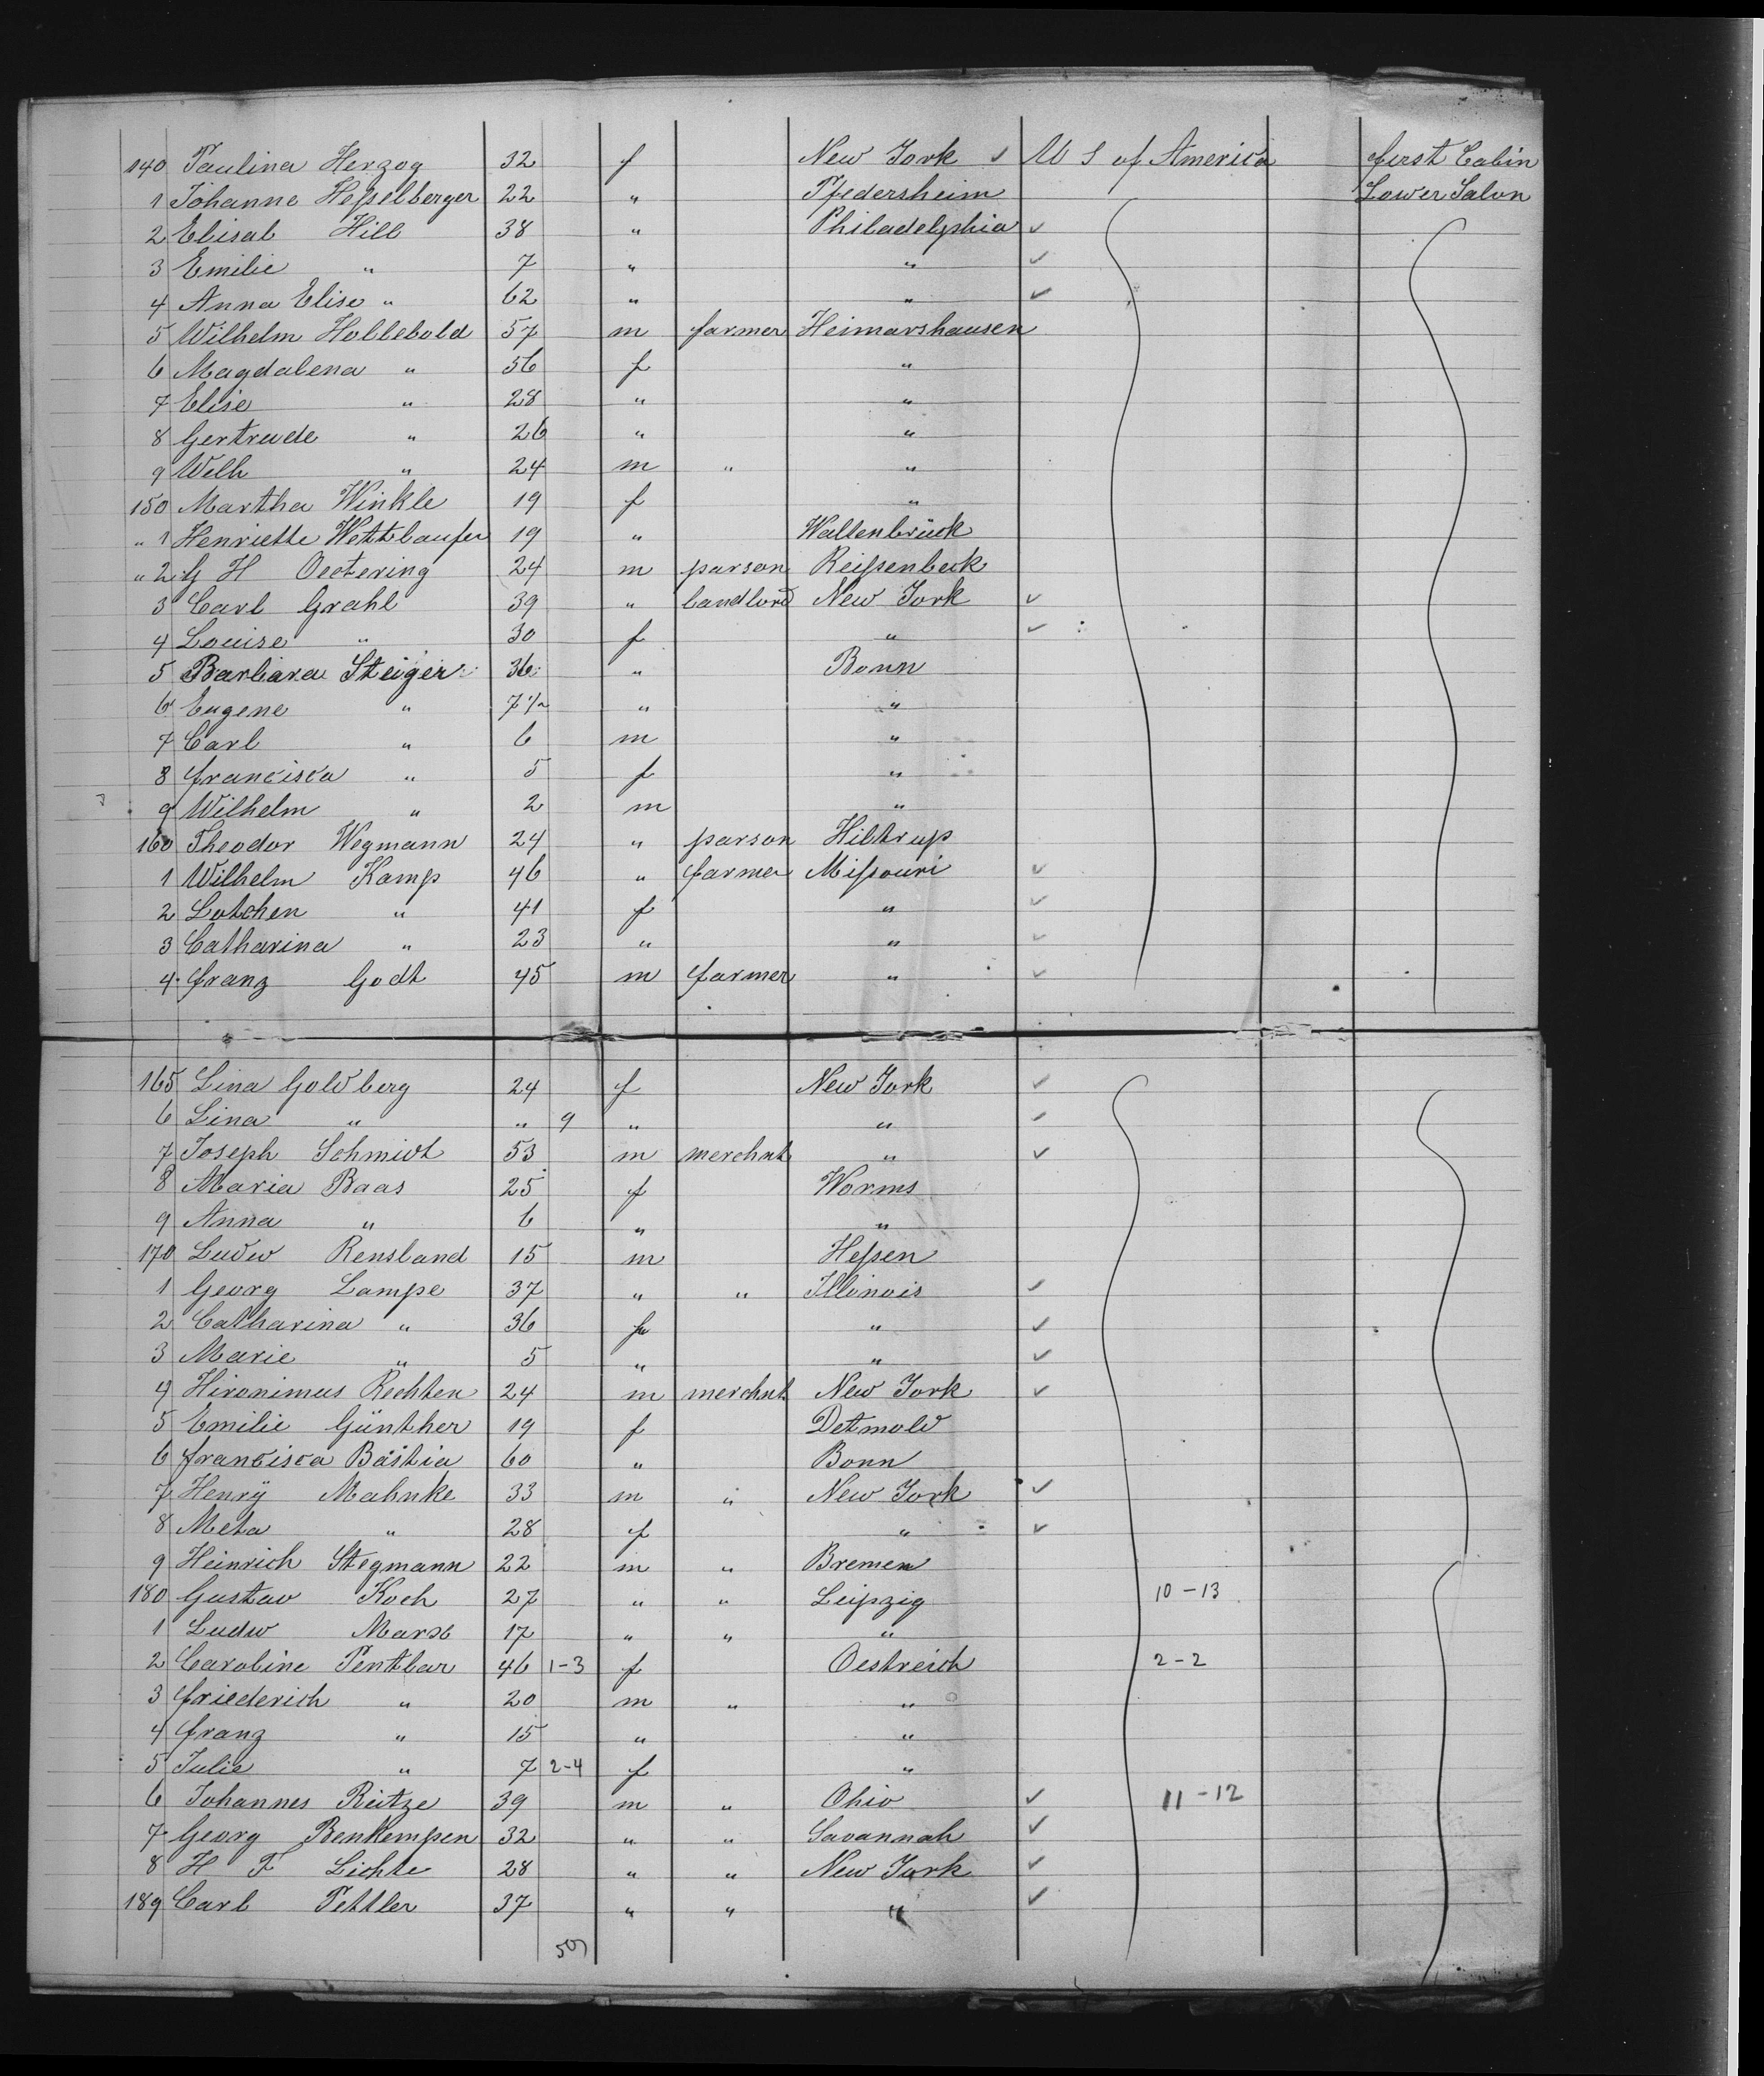 140 Paulina Herzog 32 f New York ✓ U S of America first Cabin
1 Johanne Heſselberger 22 " Pfedersheim Lower Salon
2 Elisab Hill 38 " Philadelphia ✓
3 Emilie " 7 " " ✓
4 Anna Elise " 62 " " ✓
5 Wilhelm Hollebold 57 m farmer Heimarshausen
6 Magdalena " 56 f "
7 Elise " 28 " "
8 Gertrude " 26 " "
9 Wilh " 24 m " "
150 Martha Winkle 19 f "
" 1 Henriette Wettlaufer 19 " Wallenbrück
" 2 G H Oectering 24 m parson Reiſsenbeck
3 Carl Grahl 39 " landlord New York ✓
4 Louise " 30 f " ✓
5 Barbara Steiger 36 " Bonn
6 Eugene " 7½ " "
7 Carl " 6 m "
8 francisca " 5 f "
9 Wilhelm " 2 m "
160 Theodor Wegmann 24 " parson Hiltrup
1 Wilhelm Kamp 46 " farmer Miſsouri ✓
2 Lotchen " 41 f " ✓
3 Catharina " 23 " " ✓
4 franz Godt 45 m farmer " ✓
165 Lina Goldberg 24 f New York ✓
6 Lina " " 9 " " ✓
7 Joseph Schmidt 53 m merchnt " ✓
8 Maria Baas 25 f Worms
9 Anna " 6 " "
170 Ludw Rensland 15 m Heſsen
1 Georg Lampe 37 " " Illinois ✓
2 Catharina " 36 f " ✓
3 Marie " 5 " " ✓
4 Hironimus Rechten 24 m merchnt New York ✓
5 Emilie Günther 19 f Detmold
6 francisca Bastia 60 " Bonn
7 Henrÿ Mahnke 33 m " New York ✓
8 Meta " 28 f " ✓
9 Heinrich Stegmann 22 m " Bremen
180 Gustav Koch 27 " " Leipzig 10-13
1 Ludw Marx 17 " " "
2 Caroline Pentlar 46 1-3 f Oestreich 2-2
3 friederich " 20 m " "
4 franz " 15 " "
5 Julie " 7 2-4 f "
6 Johannes Reitze 39 m " Ohio ✓ 11-12
7 Georg Benkempen 32 " " Savannah ✓
8 H F Lichte 28 " " New York ✓
189 Carl Pettler 37 " " " ✓